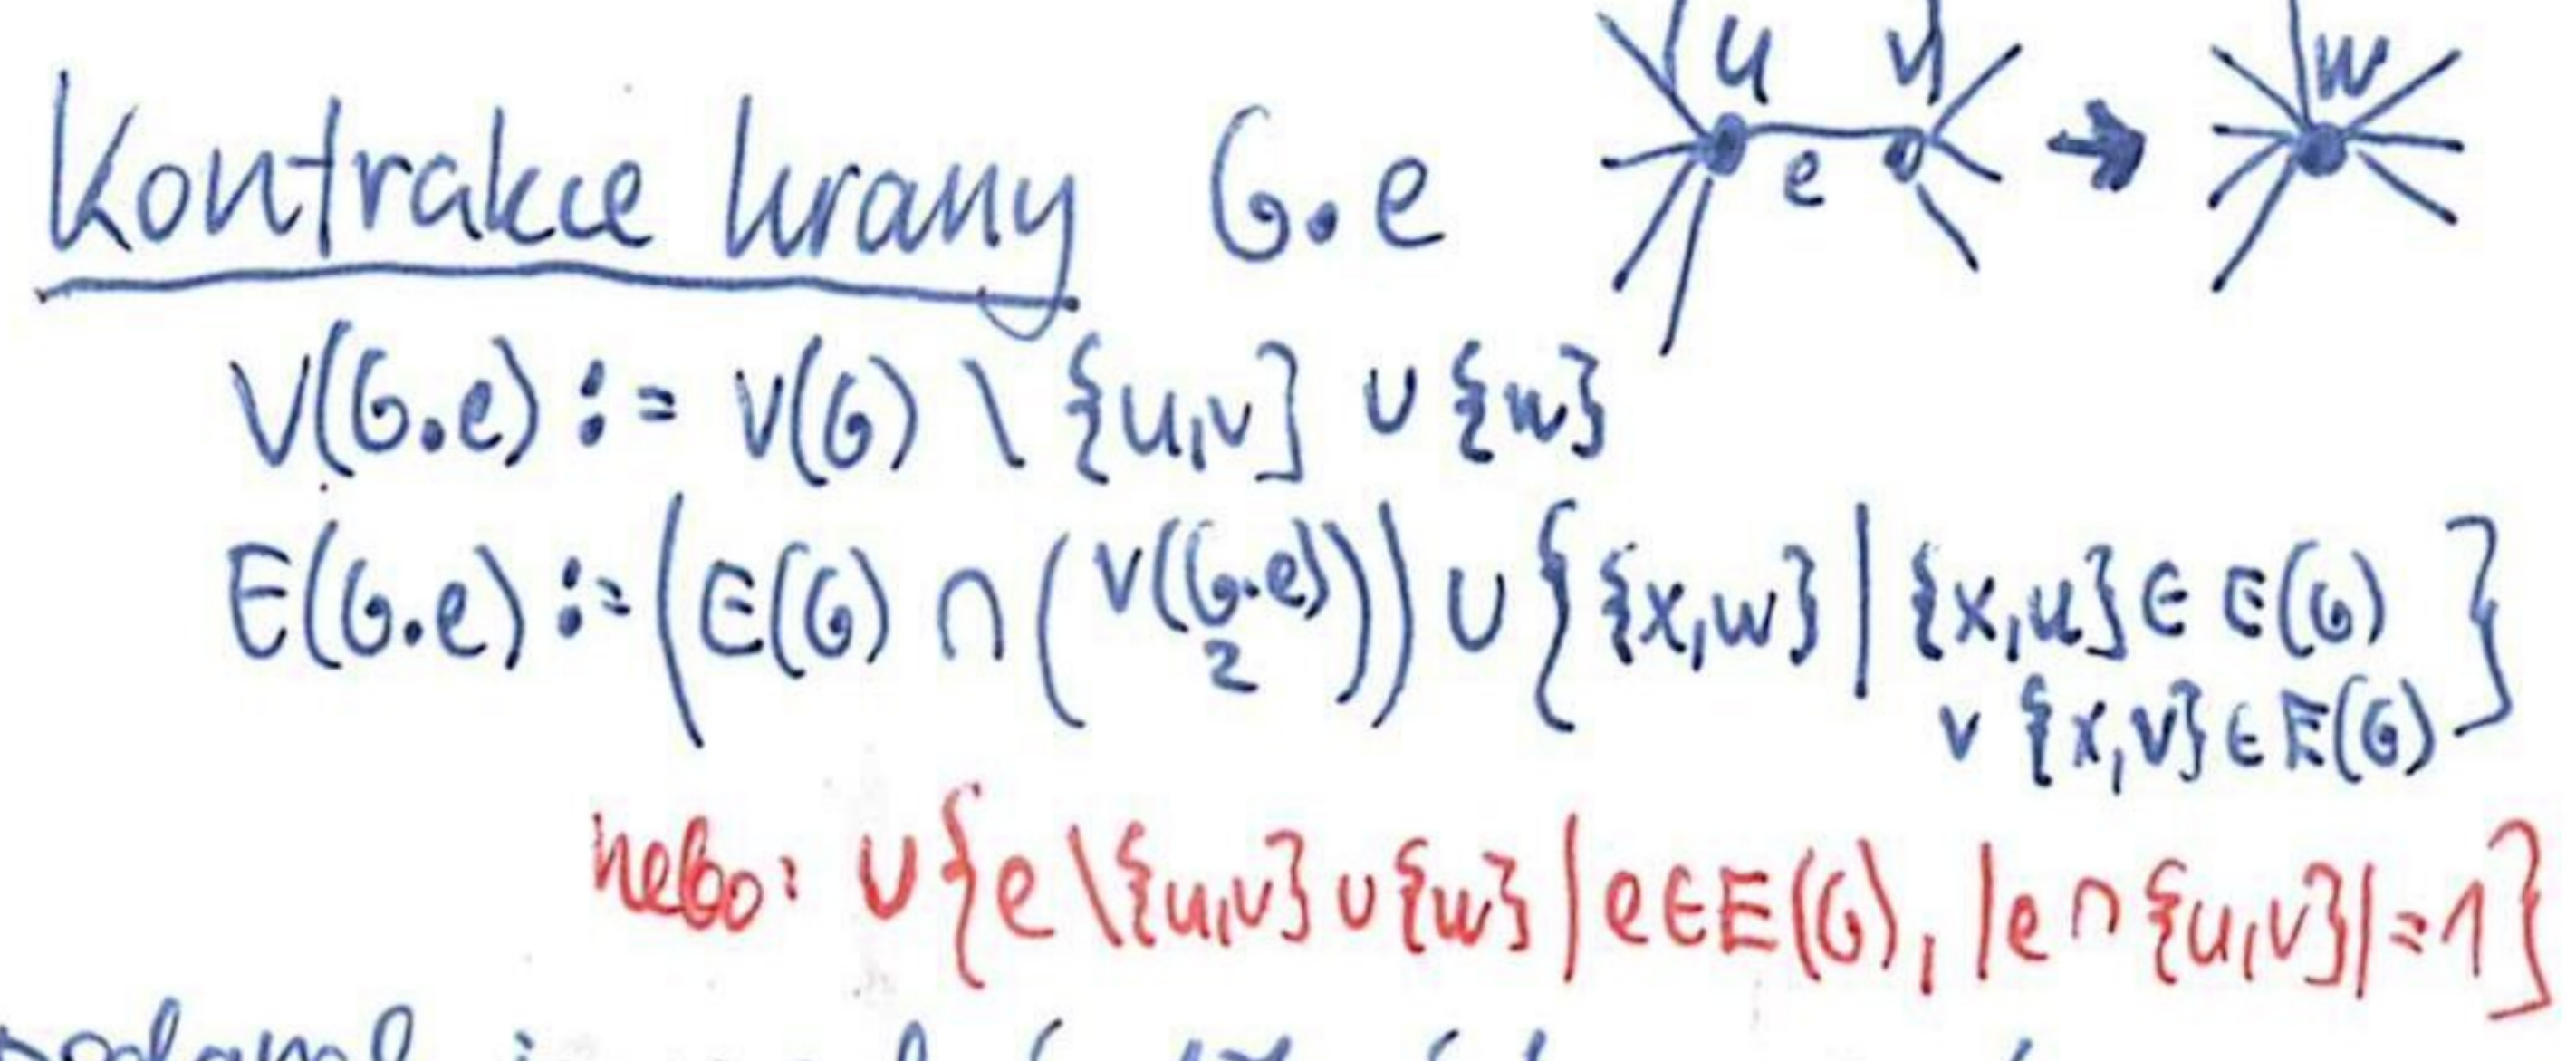 Kontrakce hrany G.e u v e w
V(G.e) := V(G) \ {u,v} ∪ {w}
E(G.e) := (E(G) ∩ (V(G.e) 2)) ∪ { {x,w} | {x,u} ∈ E(G)
∨ {x,v} ∈ E(G) }
nebo: ∪ {e \ {u,v} ∪ {w} | e ∈ E(G), |e ∩ {u,v}| = 1}